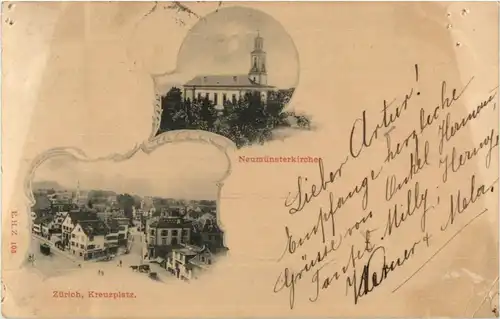 Neumünsterkirche
Zürich, Kreuzplatz.
E. H. Z. 163
Lieber Artur!
Empfange herzliche
Grüsse von Onkel Hermann
Tante Milly, Hering,
Werner & Mela